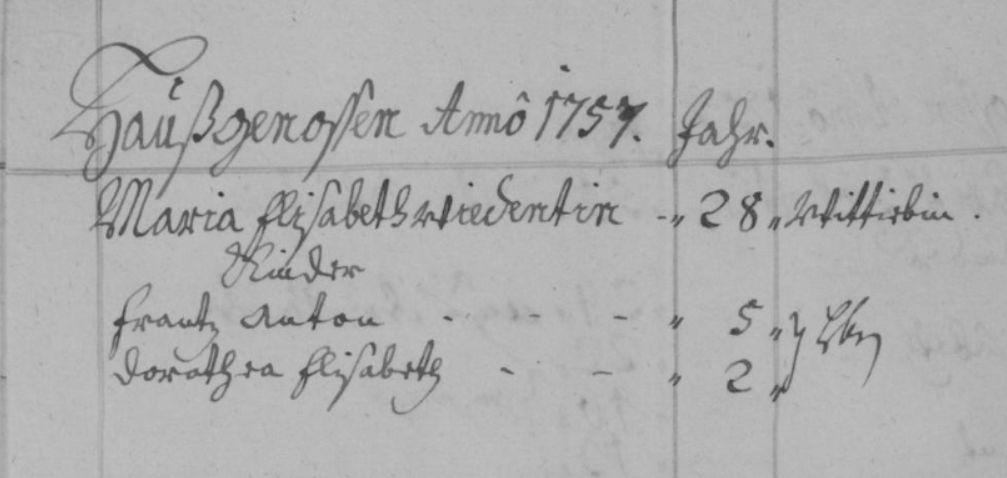 Haußgenossen Annô 1757. Jahr.
Maria Elisabeth Wiedentin -„ 28 „ Wittibin.
Kinder
Frantz Anton - - - „ 5 „
Dorothea Elisabeth - - „ 2 „